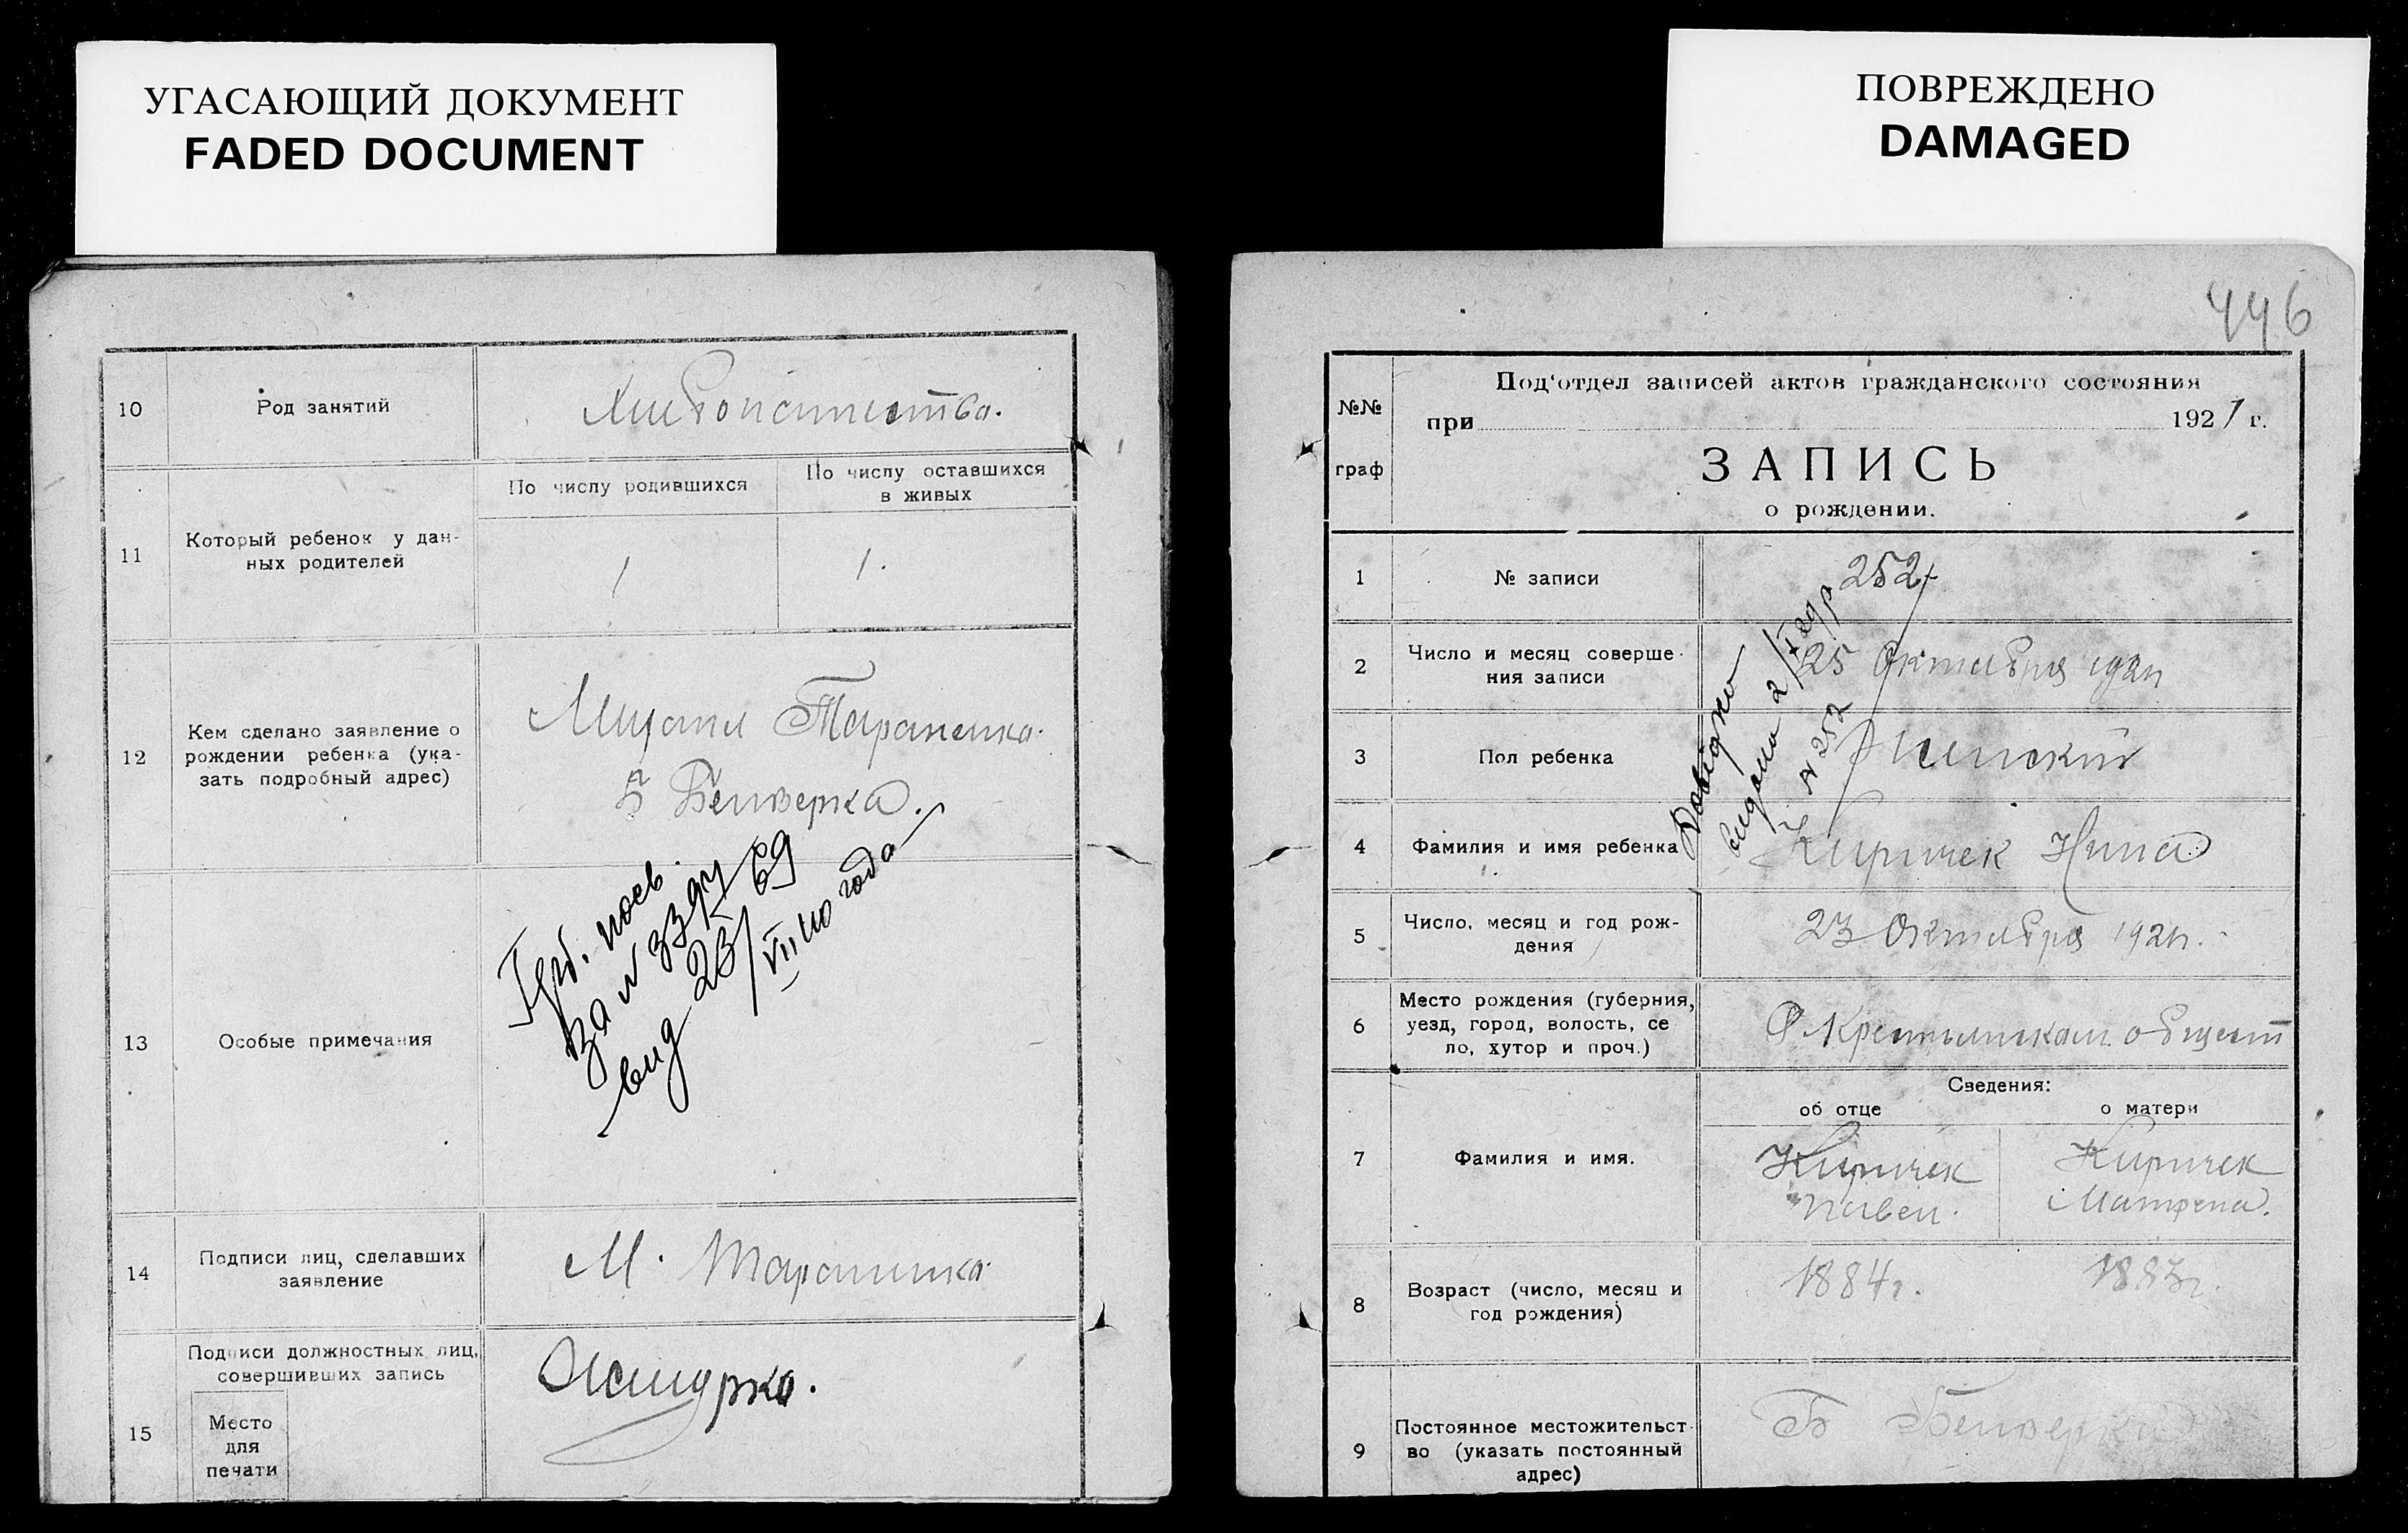 УГАСАЮЩИЙ ДОКУМЕНТ
FADED DOCUMENT
10
Род занятий
Хлебопашество.
11
Который ребенок у дан-
ных родителей
По числу родившихся
По числу оставшихся
в живых
1
1.
12
Кем сделано заявление о
рождении ребенка (ука-
зать подробный адрес)
Михаил Тараненко.
Б Белозерка.
13
Особые примечания
за N
вид 23/VII го года
14
Подписи лиц, сделавших
заявление
М. Тараненко
15
Подписи должностных лиц,
совершивших запись
Место
для
печати
ПОВРЕЖДЕНО
DAMAGED
446
№№
граф
Под'отдел записей актов гражданского состояния
при 1921 г.
ЗАПИСЬ
о рождении.
1
№ записи
252
2
Число и месяц соверше-
ния записи
25 Октября 1921
3
Пол ребенка
Женский
4
Фамилия и имя ребенка
Киричек Нина
N 252
5
Число, месяц и год рож-
дения
23 Октября 1921.
6
Место рождения (губерния,
уезд, город, волость, се
ло, хутор и проч.)
7
Фамилия и имя.
Сведения:
об отце
о матери
Киричек
Павел.
Киричек
Матрена.
8
Возраст (число, месяц и
год рождения)
1884г.
1883г.
9
Постоянное местожительст-
во (указать постоянный
адрес)
Б Белозерка